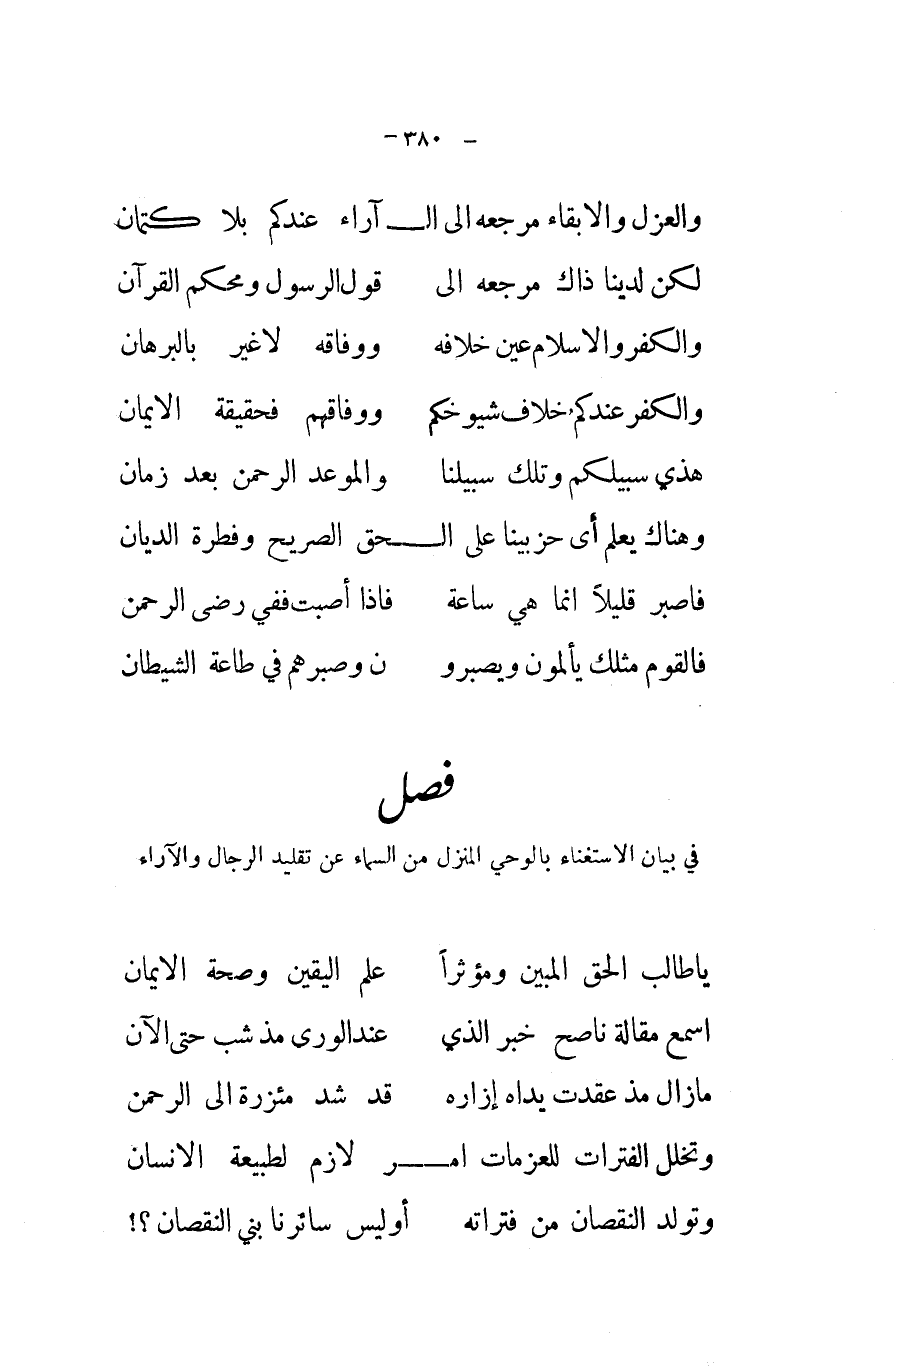 - ٣٨٠ -
والعزل والابقاء مرجعه الى الـــآراء عندكم بلا كتمان
لكن لدينا ذاك مرجعه الى قول الرسول ومحكم القرآن
والكفر والاسلام عين خلافه ووفاقه لاغير بالبرهان
والكفر عندكم خلاف شيوخكم ووفاقهم فحقيقة الايمان
هذي سبيلكم وتلك سبيلنا والموعد الرحمن بعد زمان
وهناك يعلم أى حزبينا على الـــحق الصريح وفطرة الديان
فاصبر قليلاً انما هي ساعة فاذا أصبت ففي رضى الرحمن
فالقوم مثلك يألمون ويصبرو ن وصبرهم في طاعة الشيطان
فصل
في بيان الاستغناء بالوحي المنزل من السماء عن تقليد الرجال والآراء
ياطالب الحق المبين ومؤثراً علم اليقين وصحة الايمان
اسمع مقالة ناصح خبر الذي عند الورى مذ شب حتى الآن
مازال مذ عقدت يداه إزاره قد شد مئزرة الى الرحمن
وتخلل الفترات للعزمات امـــر لازم لطبيعة الانسان
وتولد النقصان من فتراته أوليس سائرنا بني النقصان ؟!